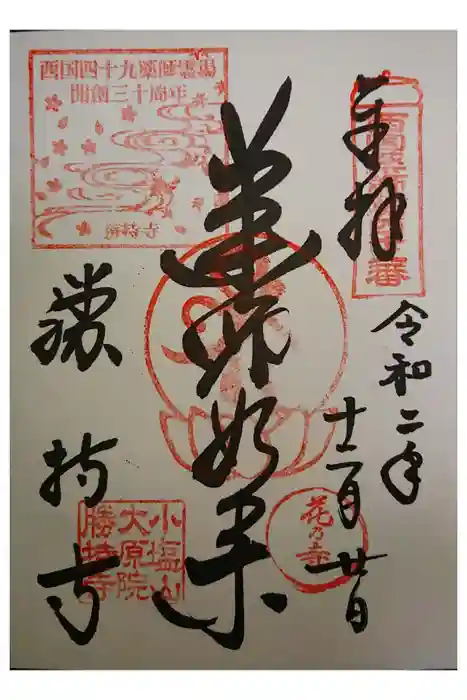 奉拝
令和二年
十二月廿日
薬師如来
勝持寺
西国四十九薬師霊場
開創三十周年
勝持寺
花の寺
小塩山
大原院
勝持寺